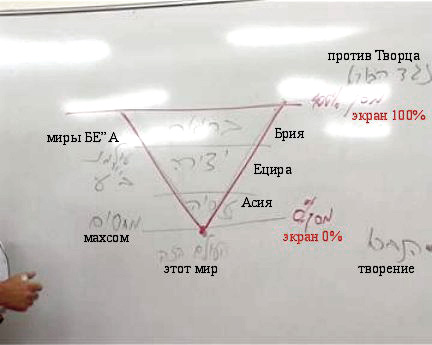 против Творца
נגד הבורא
מסך 100%
экран 100%
миры БЕ”А
בריאה
Брия
עולמות
בי"ע
יצירה
Ецира
עשיה
Асия
מחסום
מסך 0%
махсом
экран 0%
העולם הזה
этот мир
творение